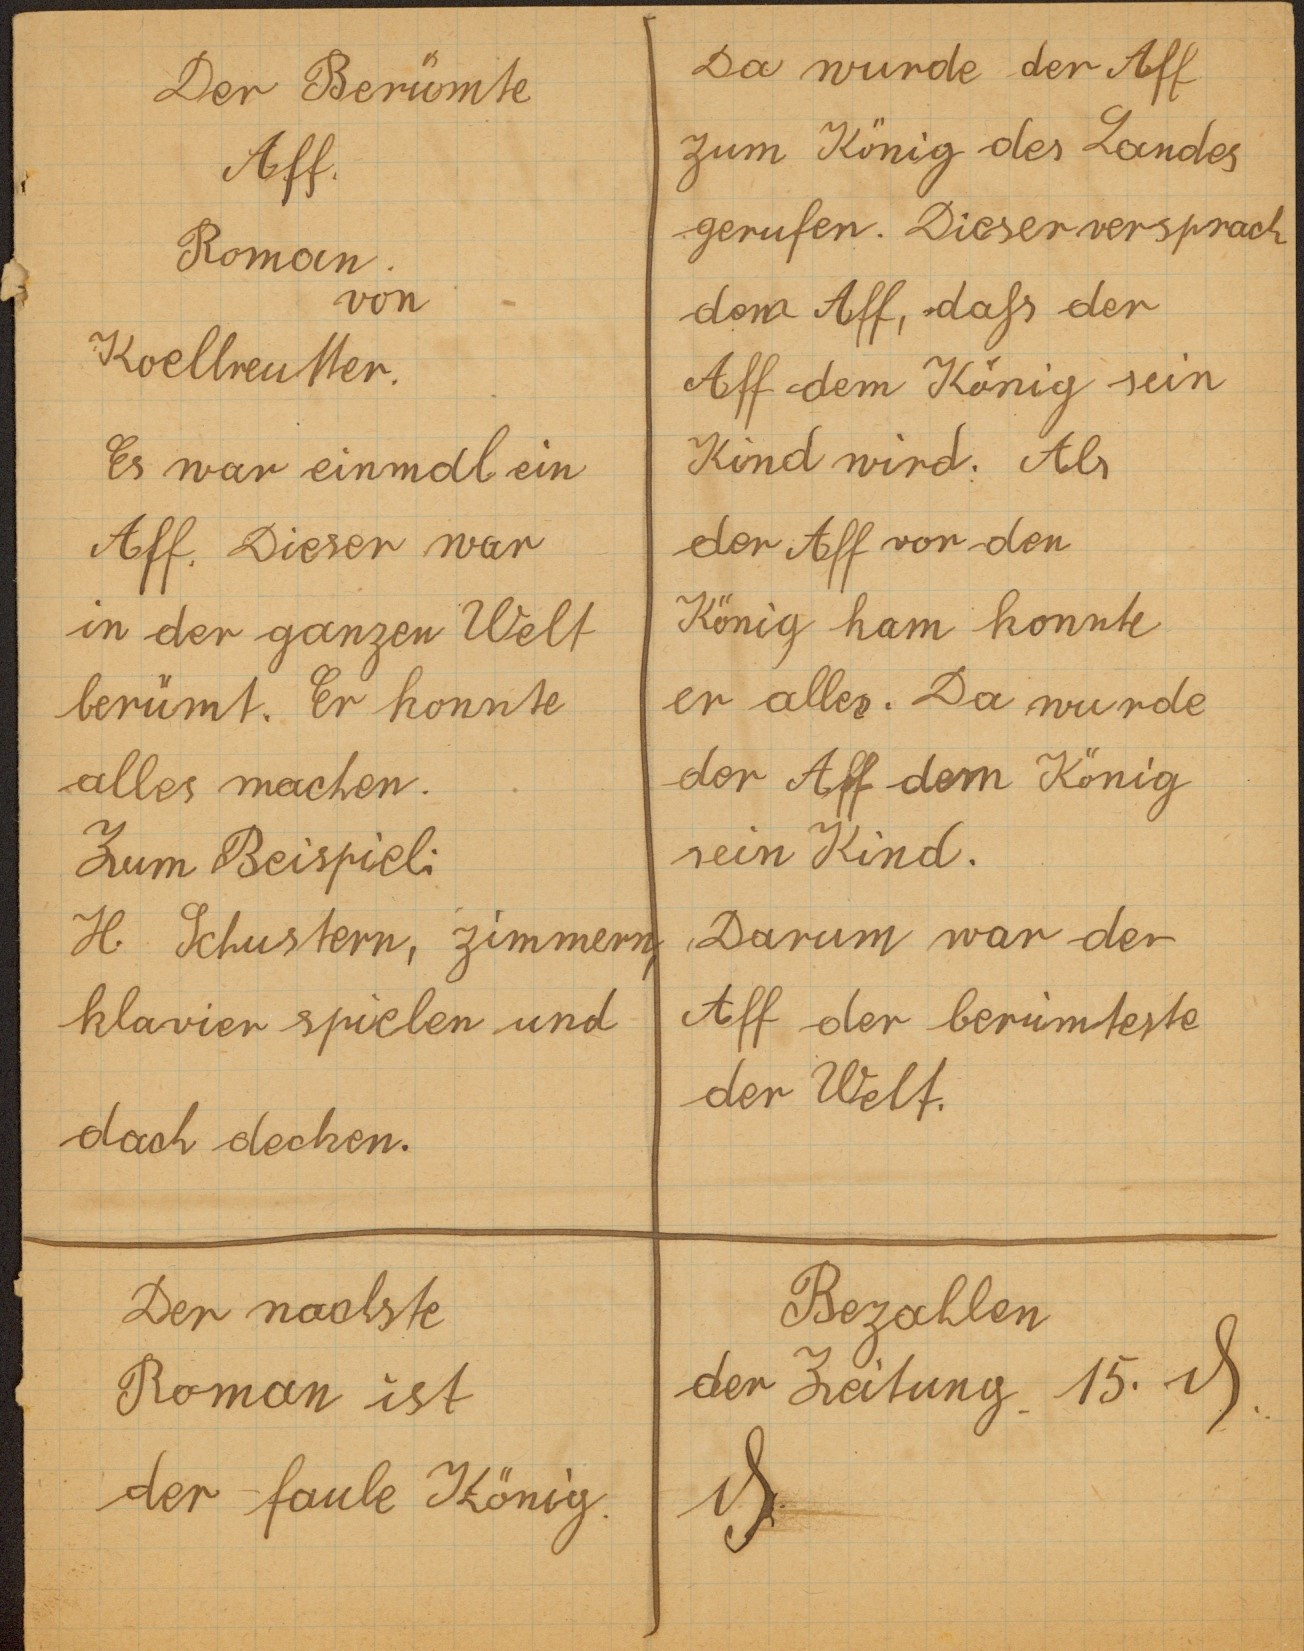 Der Berümte
Aff.
Roman.
von
Koellreutter.
Es war einmal ein
Aff. Dieser war
in der ganzen Welt
berümt. Er konnte
alles machen.
Zum Beispiel:
H. Schustern, zimmern,
klavier spielen und
dach decken.
Da wurde der Aff
zum König des Landes
gerufen. Dieser versprach
dem Aff, daſs der
Aff dem König sein
Kind wird. Als
der Aff vor den
König kam konnte
er alles. Da wurde
der Aff dem König
sein Kind.
Darum war der
Aff der berümteste
der Welt.
Der nachste
Roman ist
der faule König.
Bezahlen
der Zeitung 15. ₰.
₰.